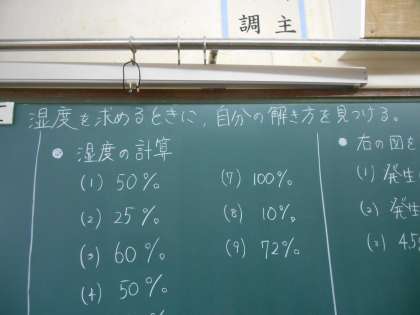 調 主
湿度を求めるときに、自分の解き方を見つける。
● 湿度の計算
(1) 50%
(2) 25%
(3) 60%
(4) 50%
(7) 100%
(8) 10%
(9) 72%
● 右の図を
(1) 発生
(2) 発生
(3) 4.5